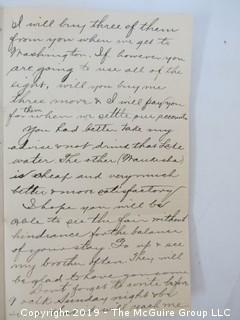 I will buy three of them
from you when we get to
Washington. If however you
are going to use all of the
eight, will you buy me
three more & I will pay you
for them when we settle our accounts
You had better take my
advice & not drink that lake
water. The other (Waukesha)
is cheap and very much
better & more satisfactory
I hope you will be
able to see the fair without
hindrance for the balance
of your stay. Go up & see
my brother often. They will
be glad to have you come
Don't forget to write before
10 o'clk Sunday night
reach me
Copyright 2019 - The McGuire Group LLC